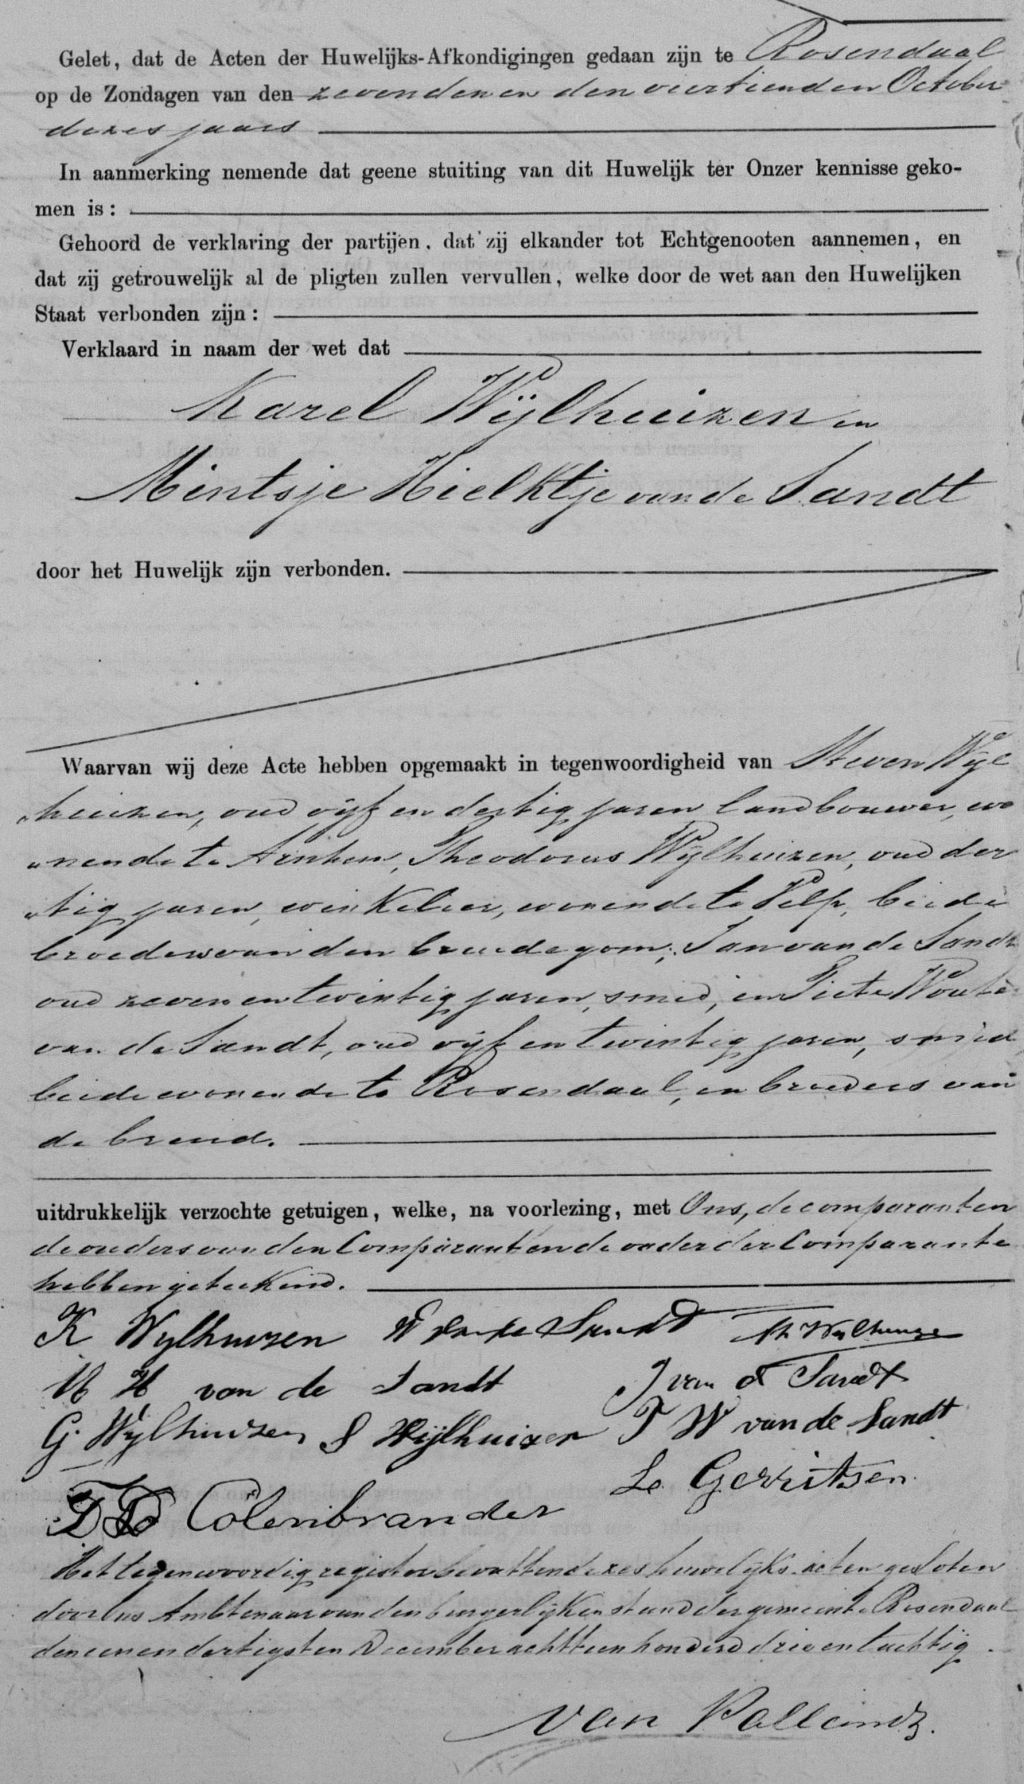 Gelet, dat de Acten der Huwelijks-Afkondigingen gedaan zijn te Rosendaal
op de Zondagen van den zevenden en den veertienden October
dezes jaars
In aanmerking nemende dat geene stuiting van dit Huwelijk ter Onzer kennisse geko-
men is:
Gehoord de verklaring der partijen, dat zij elkander tot Echtgenooten aannemen, en
dat zij getrouwelijk al de pligten zullen vervullen, welke door de wet aan den Huwelijken
Staat verbonden zijn:
Verklaard in naam der wet dat
Karel Wijlhuizen en
Mintsje Hielktje van de Sandt
door het Huwelijk zijn verbonden.
Waarvan wij deze Acte hebben opgemaakt in tegenwoordigheid van Steven Wijl
huizen, oud vijf en dertig jaren landbouwer, wo
nende te Arnhem, Theodorus Wijlhuizen, oud der
tig jaren, winkelier, wonende te Velp, beide
broeders van den bruidegom; Jan van de Sandt
oud zeven en twintig jaren, smid, en Pieter Wouter
van de Sandt, oud vijf en twintig jaren, smid
beide wonende te Rosendaal, en broeders van
de bruid.
uitdrukkelijk verzochte getuigen, welke, na voorlezing, met Ons, de comparanten
de ouders van den Comparant en de vader der Comparante
hebben geteekend.
K Wijlhuizen W van de Sandt Th Wijlhuizen
M H van de Sandt J van d Sandt
G. Wijlhuizen S Wijlhuizen P W van de Sandt
Colenbrander Gerritsen
Het tegenwoordig register bevattende zes huwelijks-acten gesloten
door ons Ambtenaar van den burgerlijken stand der gemeente Rosendaal
den een en dertigsten December achttien honderd drie en tachtig.
van Pallandt.